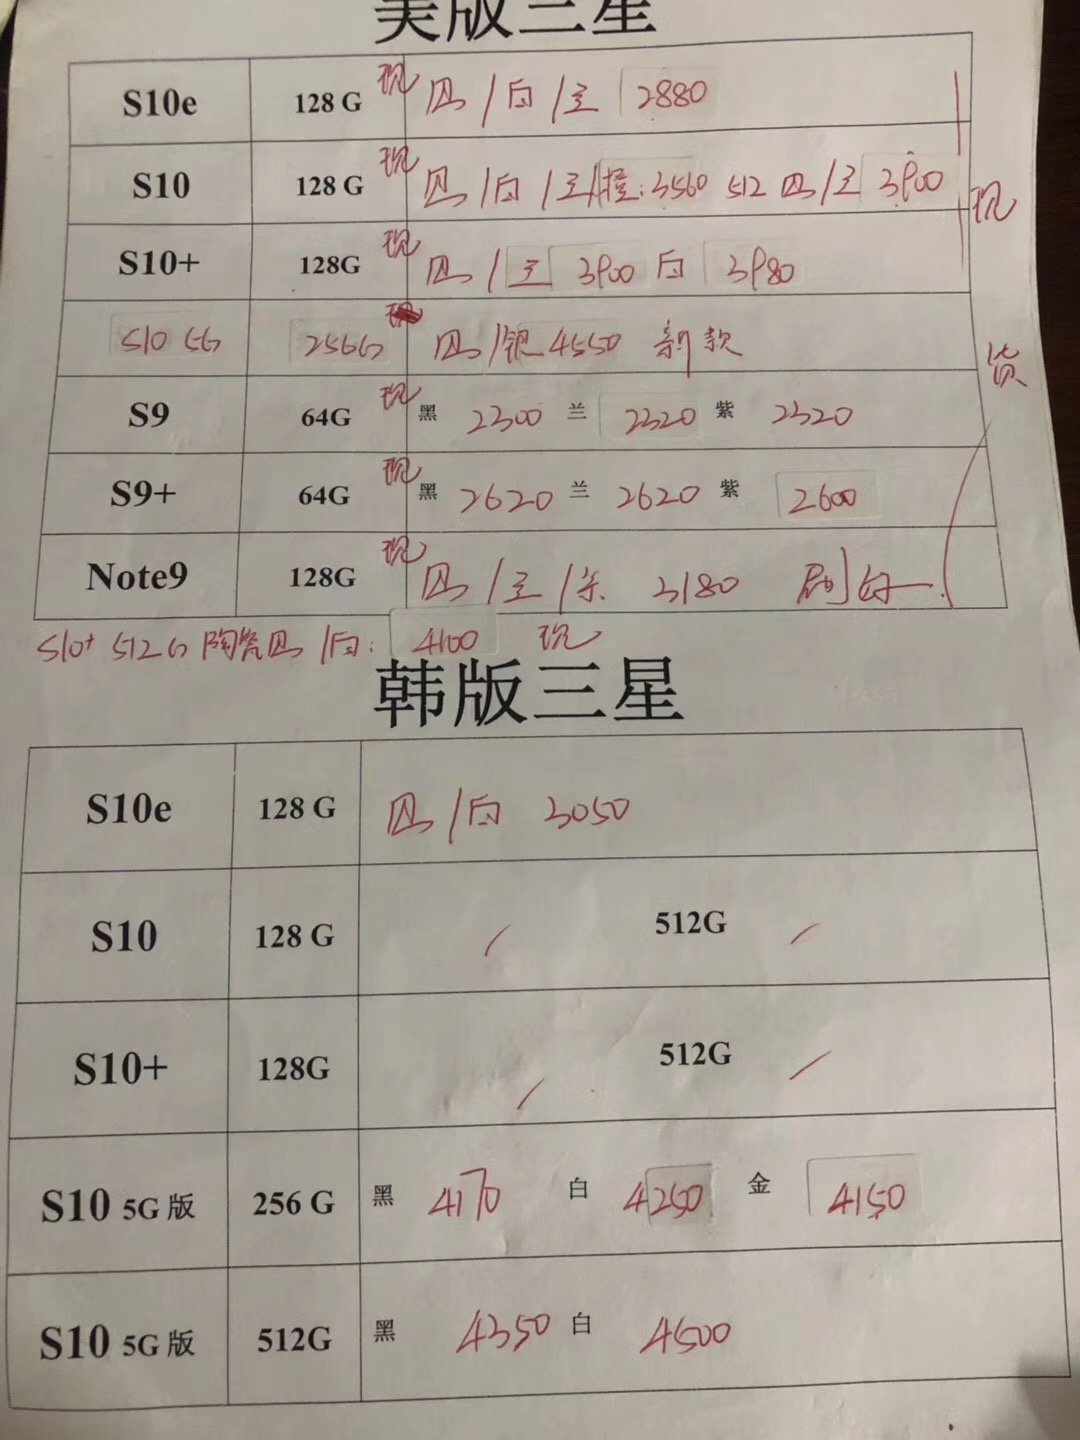 美版三星
S10e 128 G 现 黑/白/兰 2880
S10 128 G 现 黑/白/兰/橙:3560 512 黑/兰 3900
S10+ 128G 现 黑/兰 3900 白 3980
S10 5G 256G 黑/银 4550 新款
S9 64G 现 黑 2300 兰 2320 紫 2320
S9+ 64G 现 黑 2620 兰 2620 紫 2600
Note9 128G 现 黑/兰/紫 3180
现货
S10+ 512G 陶瓷黑/白: 4100 现
韩版三星
S10e 128 G 黑/白 3050
S10 128 G / 512G /
S10+ 128G / 512G /
S10 5G版 256 G 黑 4170 白 4250 金 4150
S10 5G版 512G 黑 4350 白 4500